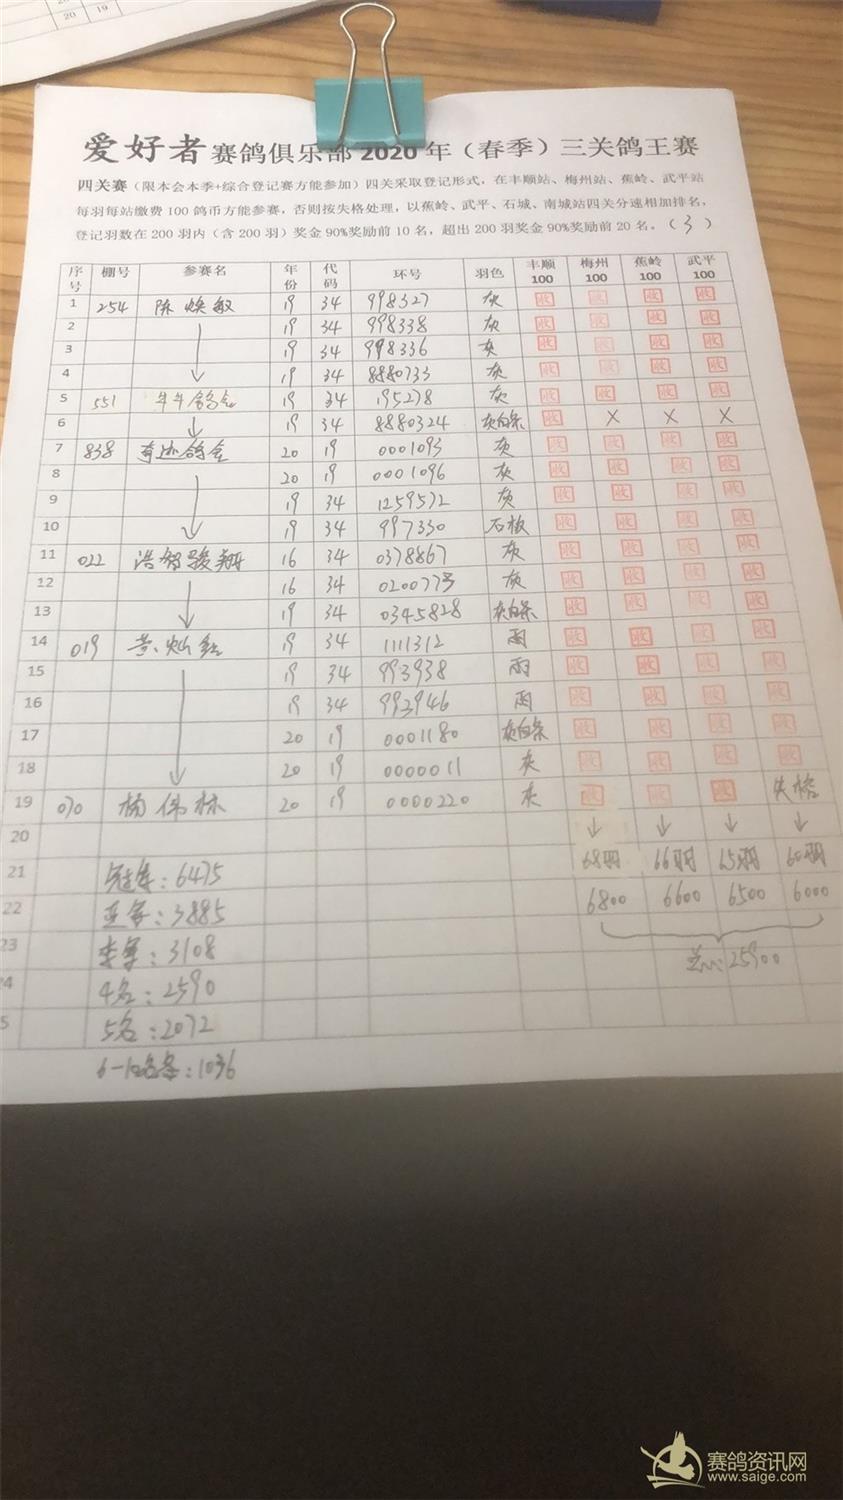 20 19
爱好者赛鸽俱乐部 2020 年（春季）三关鸽王赛
四关赛（限本会本季+综合登记赛方能参加）四关采取登记形式，在丰顺站、梅州站、蕉岭、武平站
每羽每站缴费 100 鸽币方能参赛，否则按失格处理，以蕉岭、武平、石城、南城站四关分速相加排名，
登记羽数在 200 羽内（含 200 羽）奖金 90%奖励前 10 名，超出 200 羽奖金 90%奖励前 20 名。（3）
序号 棚号 参赛名 年份 代码 环号 羽色 丰顺100 梅州100 蕉岭100 武平100
1 254 陈焕敏 19 34 998327 灰 收 收 收 收
2 19 34 998338 灰 收 收 收 收
3 19 34 998336 灰 收 收 收 收
4 19 34 8880733 灰 收 收 收 收
5 551 牛牛鸽舍 19 34 195278 灰 收 收 收 收
6 19 34 8880324 灰白条 收 X X X
7 838 奇迹鸽舍 20 19 0001093 灰 收 收 收 收
8 20 19 0001096 灰 收 收 收 收
9 19 34 1259572 灰 收 收 收 收
10 19 34 997330 石板 收 收 收 收
11 022 浩智骏翔 16 34 0378867 灰 收 收 收 收
12 16 34 0200773 灰 收 收 收 收
13 19 34 0345828 灰白条 收 收 收 收
14 019 黄灿 19 34 1111312 雨 收 收 收 收
15 19 34 993938 雨 收 收 收 收
16 19 34 993946 雨 收 收 收 收
17 20 19 0001180 灰白条 收 收 收 收
18 20 19 0000011 灰 收 收 收 收
19 070 杨伟林 20 19 0000220 灰 收 收 收 失格
20
21 冠军：6475 68羽 66羽 65羽 60羽
22 亚军：3885 6800 6600 6500 6000
23 季军：3108 总：25900
24 4名：2590
5 5名：2072
6-10名各：1036
赛鸽资讯网
www.saige.com